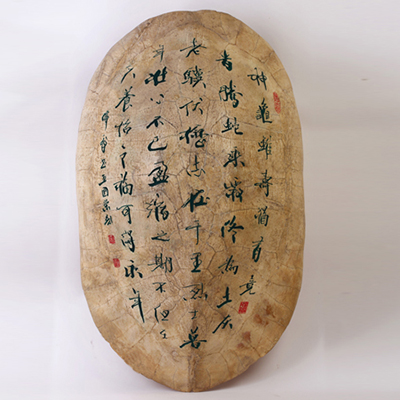 神龜雖壽猶有竟
時騰蛇乘霧終為土灰
老驥伏櫪志在千里烈士暮
年壯心不已盈縮之期不但在
天養怡之福可得永年